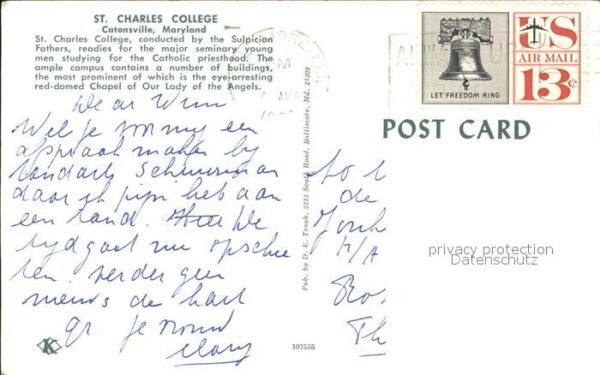 ST. CHARLES COLLEGE
Catonsville, Maryland
St. Charles College, conducted by the Sulpician
Fathers, readies for the major seminary young
men studying for the Catholic priesthood. The
ample campus contains a number of buildings,
the most prominent of which is the eye-arresting
red-domed Chapel of Our Lady of the Angels.
Wil je een
afspraak maken bij
tandarts Schuurman
daar ik pijn heb aan
een tand. We
tijd gaat nu opschie
ten. verder geen
nieuws de hart
gr. je
Mary
K
107555
Pub. by D. E. Traub, 2213 South Road, Baltimore, Md. 21209
AUG
LET FREEDOM RING
US
AIR MAIL
13¢
POST CARD
de
privacy protection
Datenschutz